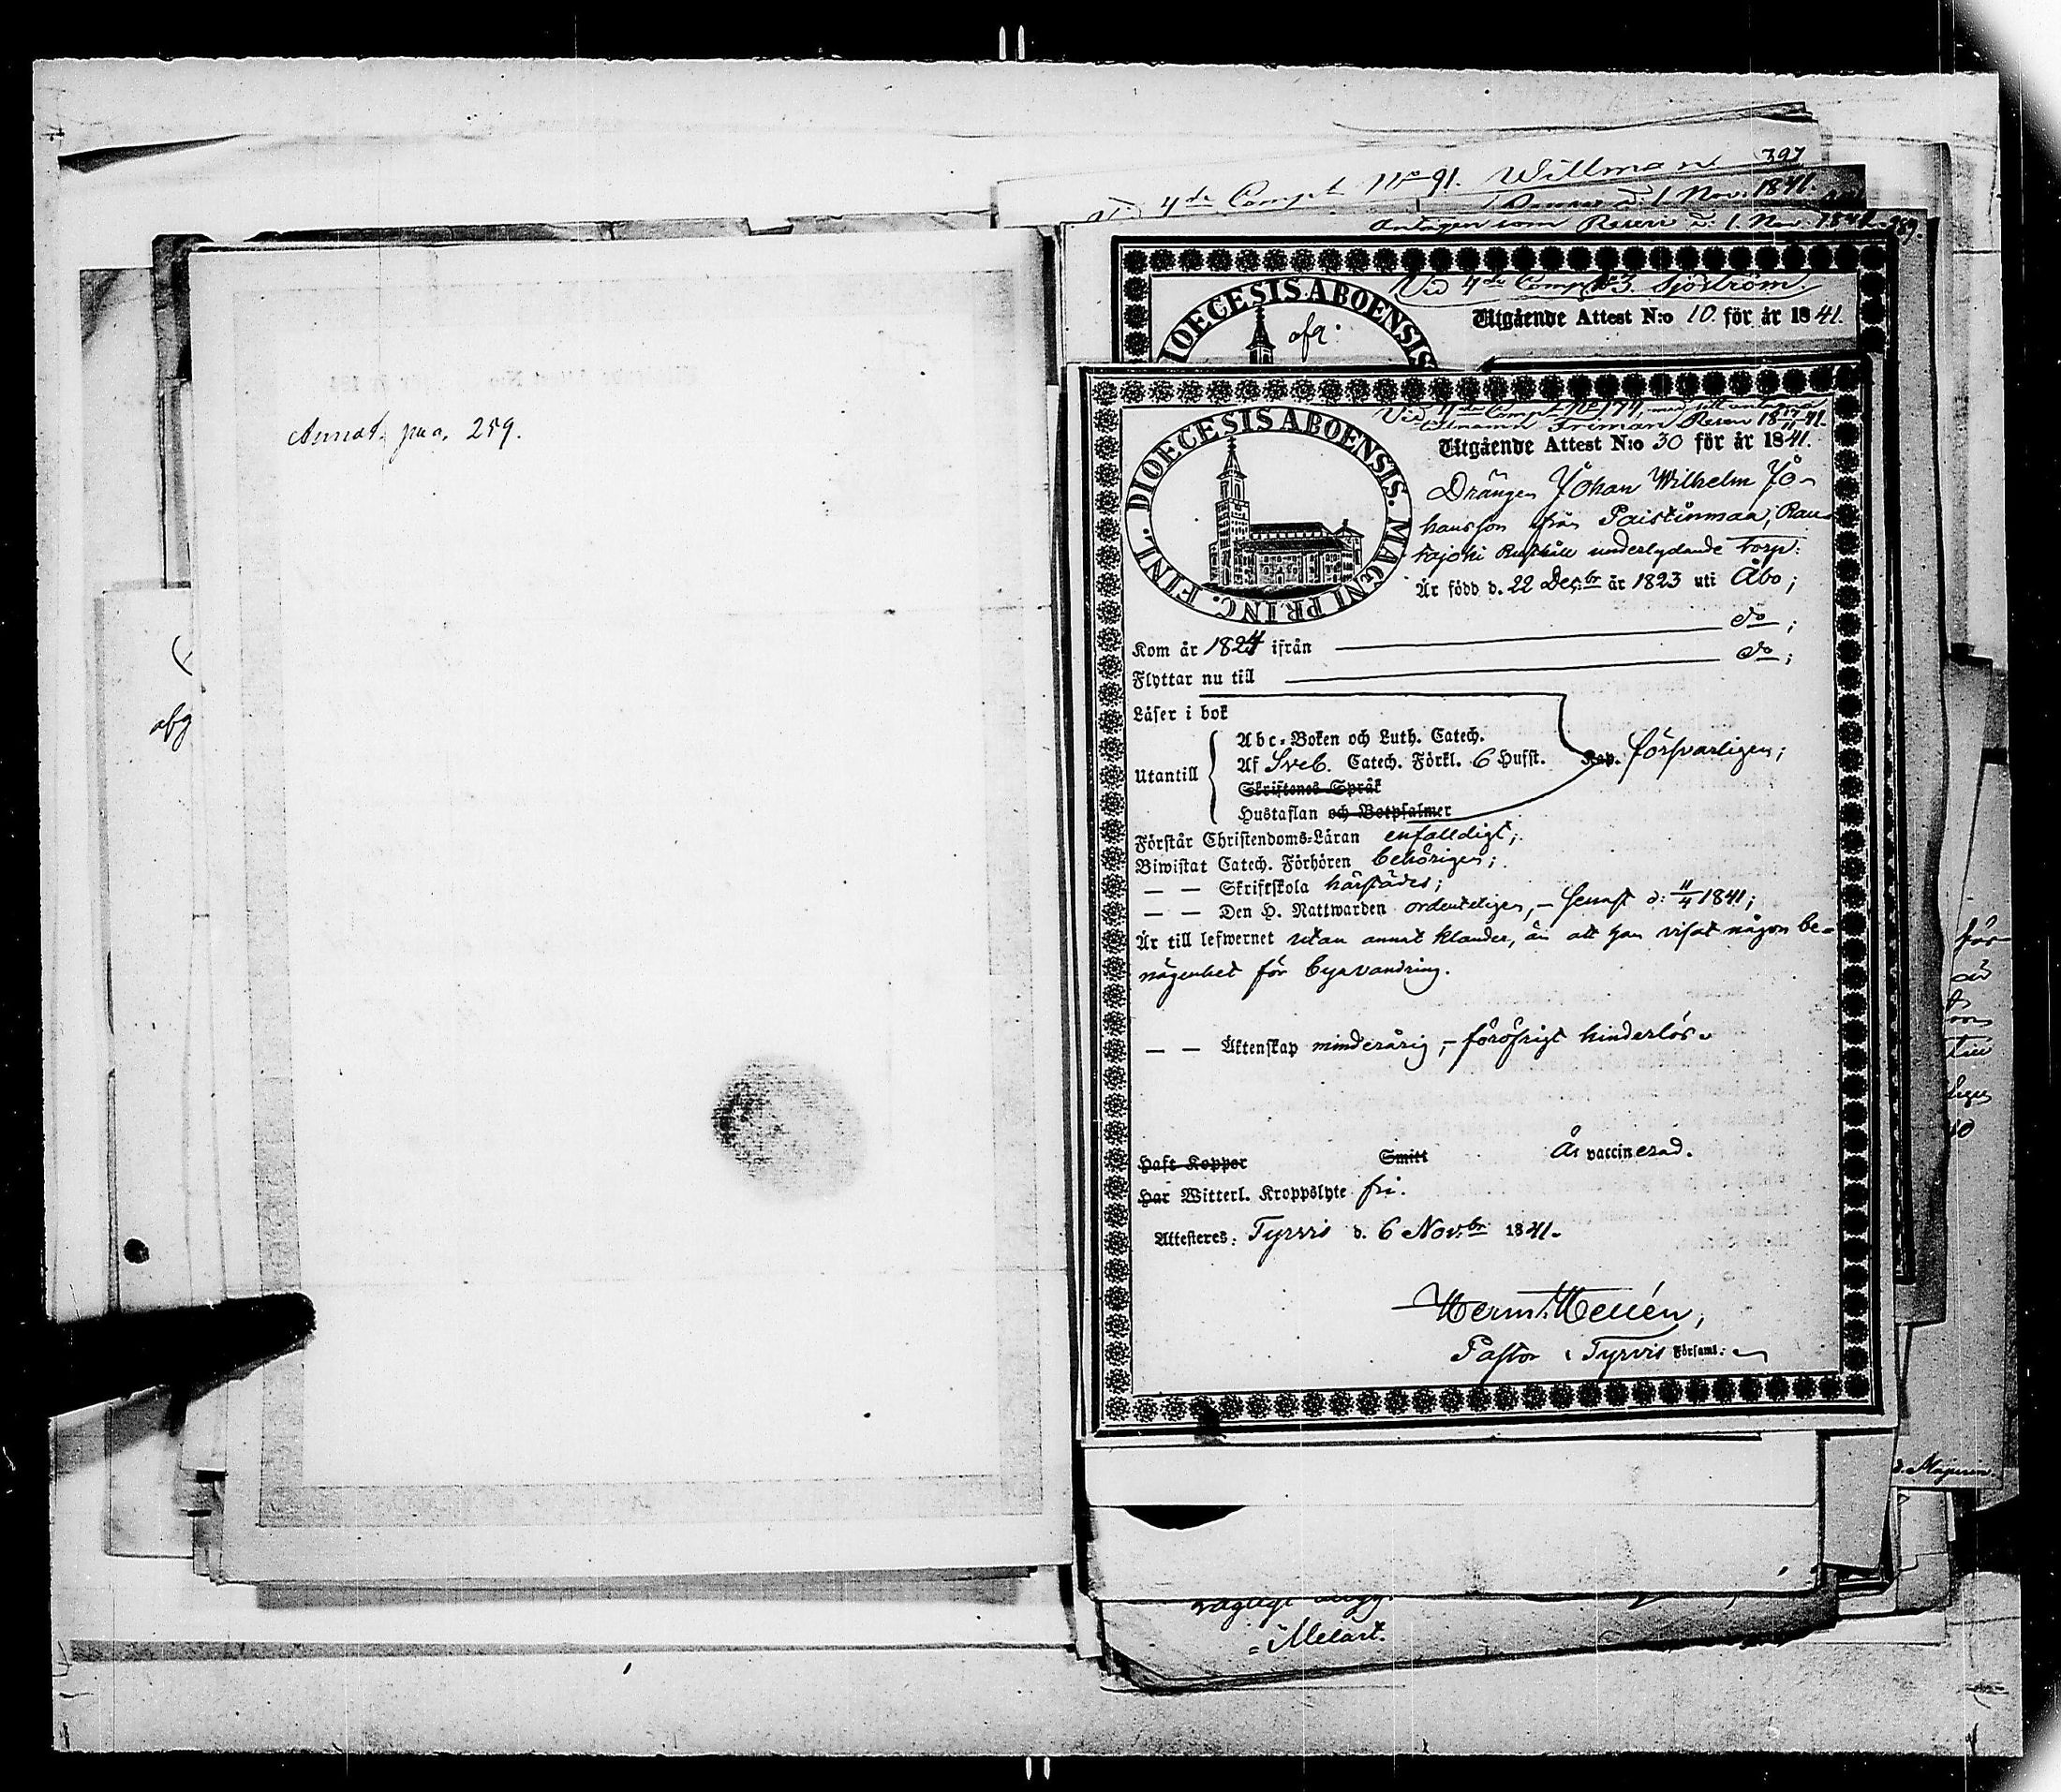 Annot. pag. 259.
afg
Vid 4de Comp. No 91. Willman 397
d. 1 Nov. 1841.
Antagen som Reserv d: 1. Nov. 1841. 389.
Vid 4de Comp. No 3. Sjöström.
DIOECESIS ABOENSIS
afg.
Utgående Attest N:o 10. för år 1841.
Vid 4de Comp. No 174, med antagna
tillnamn Friman Reserv 18 17/11 41.
DIOECESIS ABOENSIS. MAGNI PRINC. FINL.
Utgående Attest N:o 30 för år 1841.
Drängen Johan Wilhelm Jo-
hansson från Paistinmaa, Rau-
tajoki Rusthåll underlydande torp.
Är född d. 22 Dec:br år 1823 uti Åbo;
Kom år 1824 ifrån do;
Flyttar nu till do;
Läser i bok
Utantill
Abc-Boken och Luth. Catech.
Af Sveb. Catech. Förkl. 6 Hufst. Kap. försvarligen;
Skriftenes Språk
Hustaflan och Botpsalmer
Förstår Christendoms-Läran enfalldigt;
Biwistat Catech. Förhören behörigen;
— — Skriftskola härstädes;
— — Den H. Nattwarden ordenteligen, – senast d: 11/4 1841;
Är till lefwernet utan annat klander, än att han visat någon be-
nägenhet för byavandring.
— — Äktenskap minderårig, – föröfrigt hinderlös.
Haft Koppor Smitt Är vaccinerad.
Har Witterl. Kroppslyte fri.
Attesteres: Tyrvis d. 6 Nov:br 1841.
Herm. Hellén,
Pastor i Tyrvis Församl.
Melart.